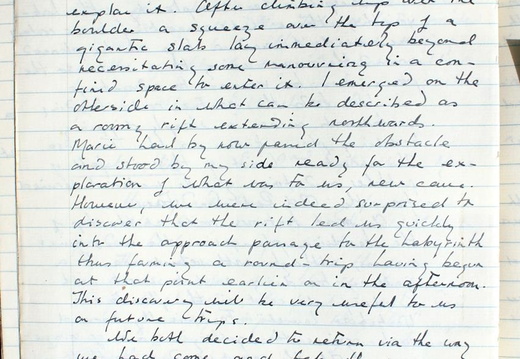 explore it. After climbing up over the
boulder a squeeze over the top of a
gigantic slab lay immediately beyond
necessitating some manouvring in a con-
fined space to enter it. I emerged on the
otherside in what can be described as
a roomy rift extending northwards.
Marie had by now passed the obstacle
and stood by my side ready for the ex-
ploration of what was to us, new cave.
However, we were indeed surprised to
discover that the rift led us quickly
into the approach passage to the Labyrinth
thus forming a round-trip having begun
at that point earlier on in the afternoon.
This discovery will be very useful to us
on future trips.
We both decided to return via the way
we had come and